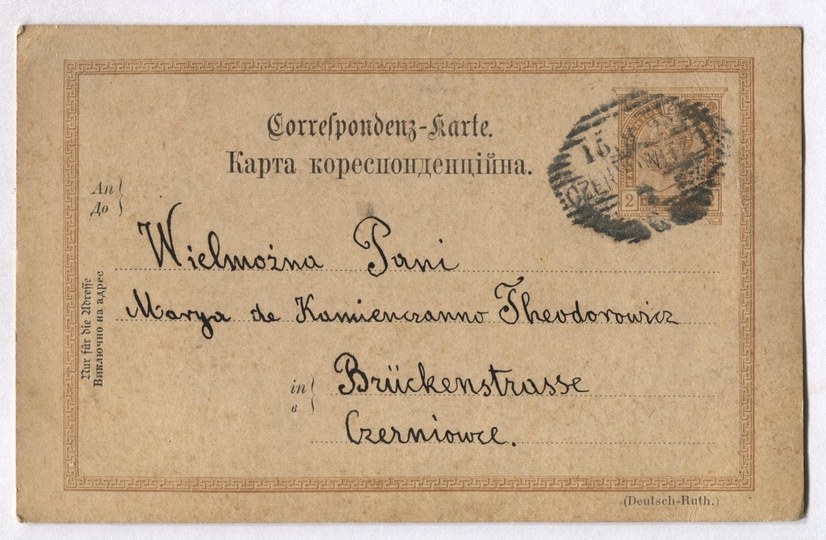 Correſpondenz-Karte.
Карта кореспонденційна.
An
До
Wielmożna Pani
Marya de Kamienczanno Theodorowicz
in
в
Brückenstrasse
Czerniowce.
Nur für die Adreſſe
Виключно на адрес
15
2
(Deutsch-Ruth.)